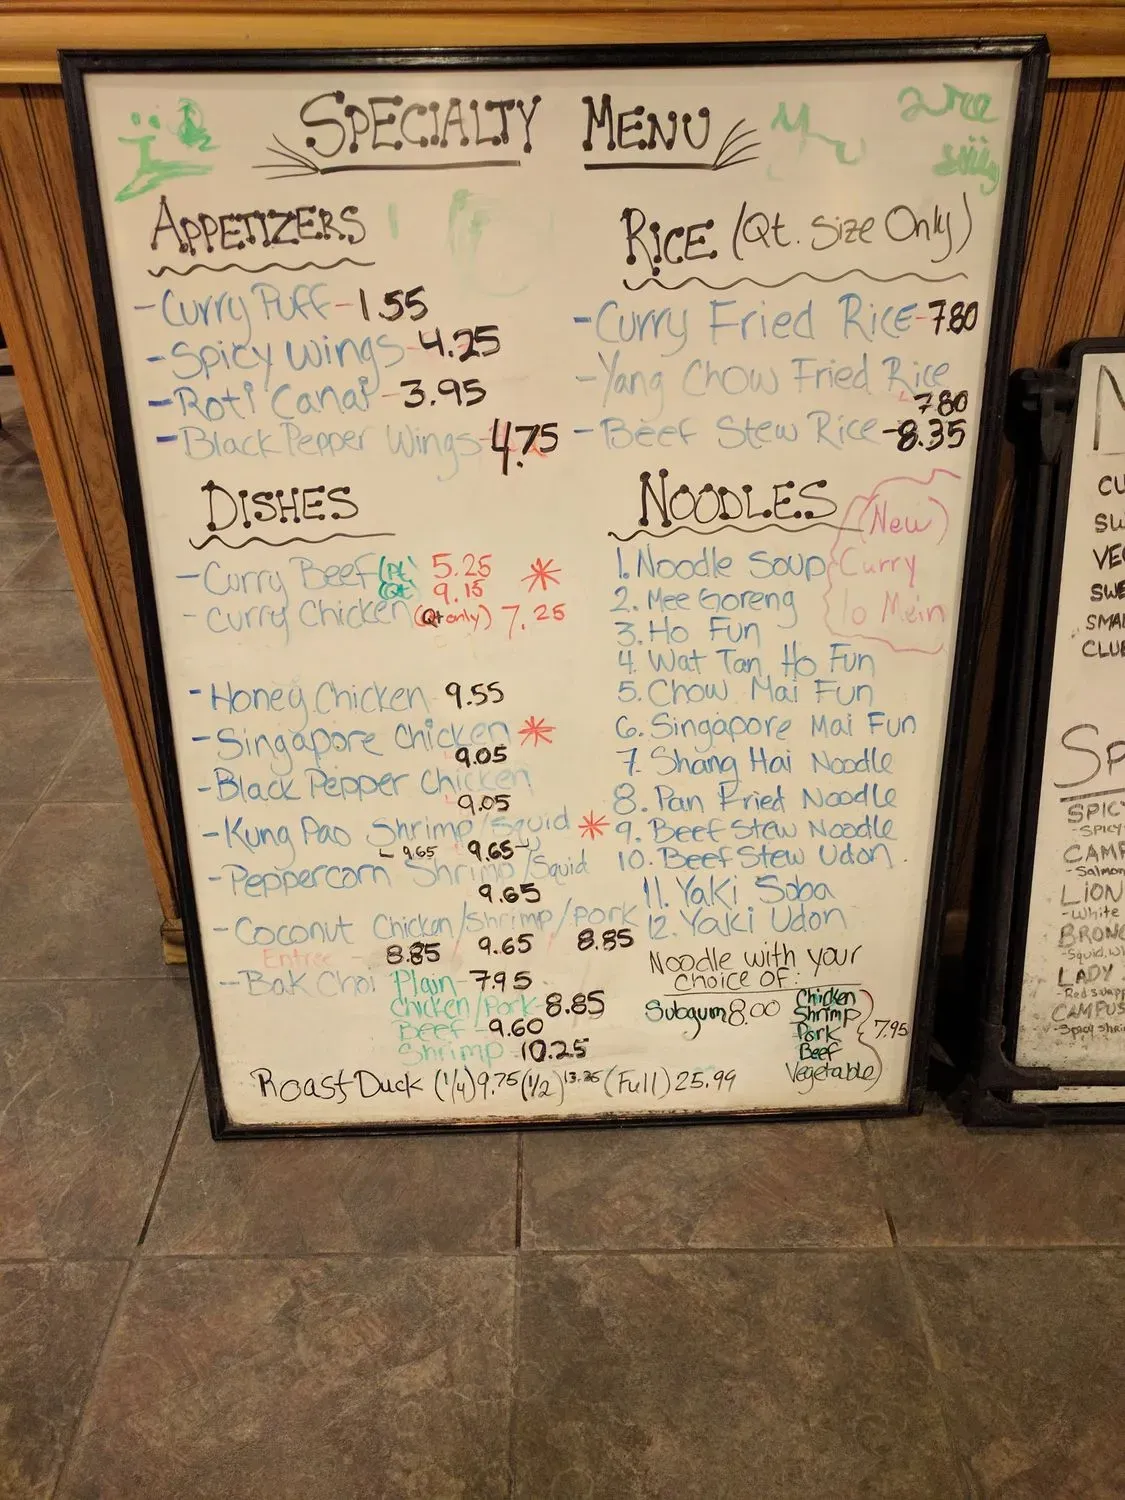 SPECIALTY MENU
APPETIZERS
-Curry Puff-1.55
-Spicy Wings-4.25
-Roti Canai-3.95
-Black Pepper Wings-4.75
DISHES
-Curry Beef (Pt) 5.25 *
(Qt) 9.15
-Curry Chicken (Qt only) 7.25
-Honey Chicken 9.55
-Singapore Chicken *
9.05
-Black Pepper Chicken
9.05
-Kung Pao Shrimp/Squid *
9.65 9.65
-Peppercorn Shrimp/Squid
9.65
-Coconut Chicken/Shrimp/Pork
Entree - 8.85 / 9.65 / 8.85
-Bak Choi Plain-7.95
Chicken/Pork-8.85
Beef-9.60
Shrimp-10.25
Roast Duck (1/4) 9.75 (1/2) (Full) 25.99
RICE (Qt. Size Only)
-Curry Fried Rice-7.80
-Yang Chow Fried Rice
-7.80
-Beef Stew Rice-8.35
NOODLES
(New)
Curry
lo Mein
1. Noodle Soup
2. Mee Goreng
3. Ho Fun
4. Wat Tan Ho Fun
5. Chow Mai Fun
6. Singapore Mai Fun
7. Shang Hai Noodle
8. Pan Fried Noodle
9. Beef Stew Noodle
10. Beef Stew Udon.
11. Yaki Soba
12. Yaki Udon
Noodle with your
choice of:
Subgum 8.00
Chicken
Shrimp
Pork
Beef
Vegetable
7.95
CU
SW
VE
SWE
SMAL
CLUB
SP
SPIC
-SPICY
CAMP
-Salmon
LION
-White
BRONC
-Squid, W
LADY
-Red Snapp
CAMPUS
-Spicy Shri